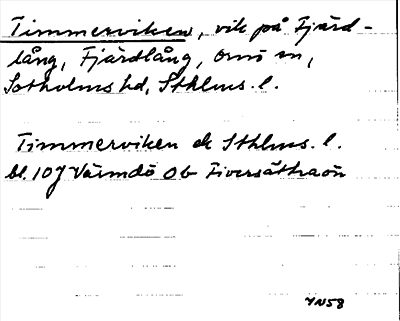 Timmerviken, vik på Fjärd-
lång, Fjärdlång, Ornö sn,
Sotholms hd, Sthlms. l.
Timmerviken ek Sthlms. l.
bl. 107 Värmdö Ob Fiversättraön
YN58